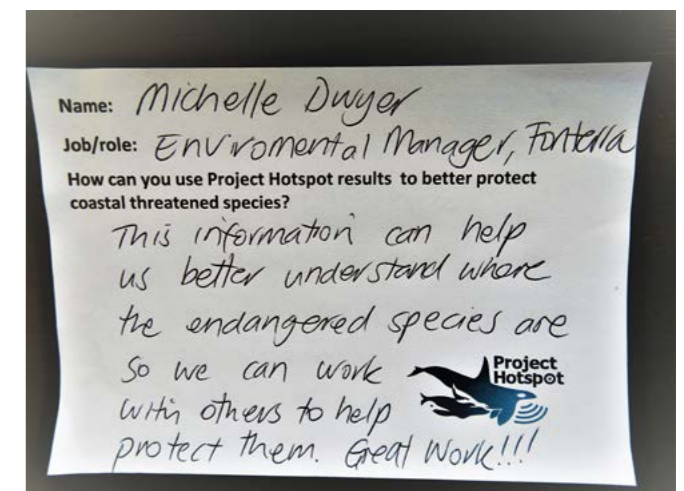 Name: Michelle Dwyer
Job/role: Enviromental Manager, Fonterra
How can you use Project Hotspot results to better protect
coastal threatened species?
This information can help
us better understand where
the endangered species are
so we can work
with others to help
protect them. Great Work!!!
Project
Hotspot